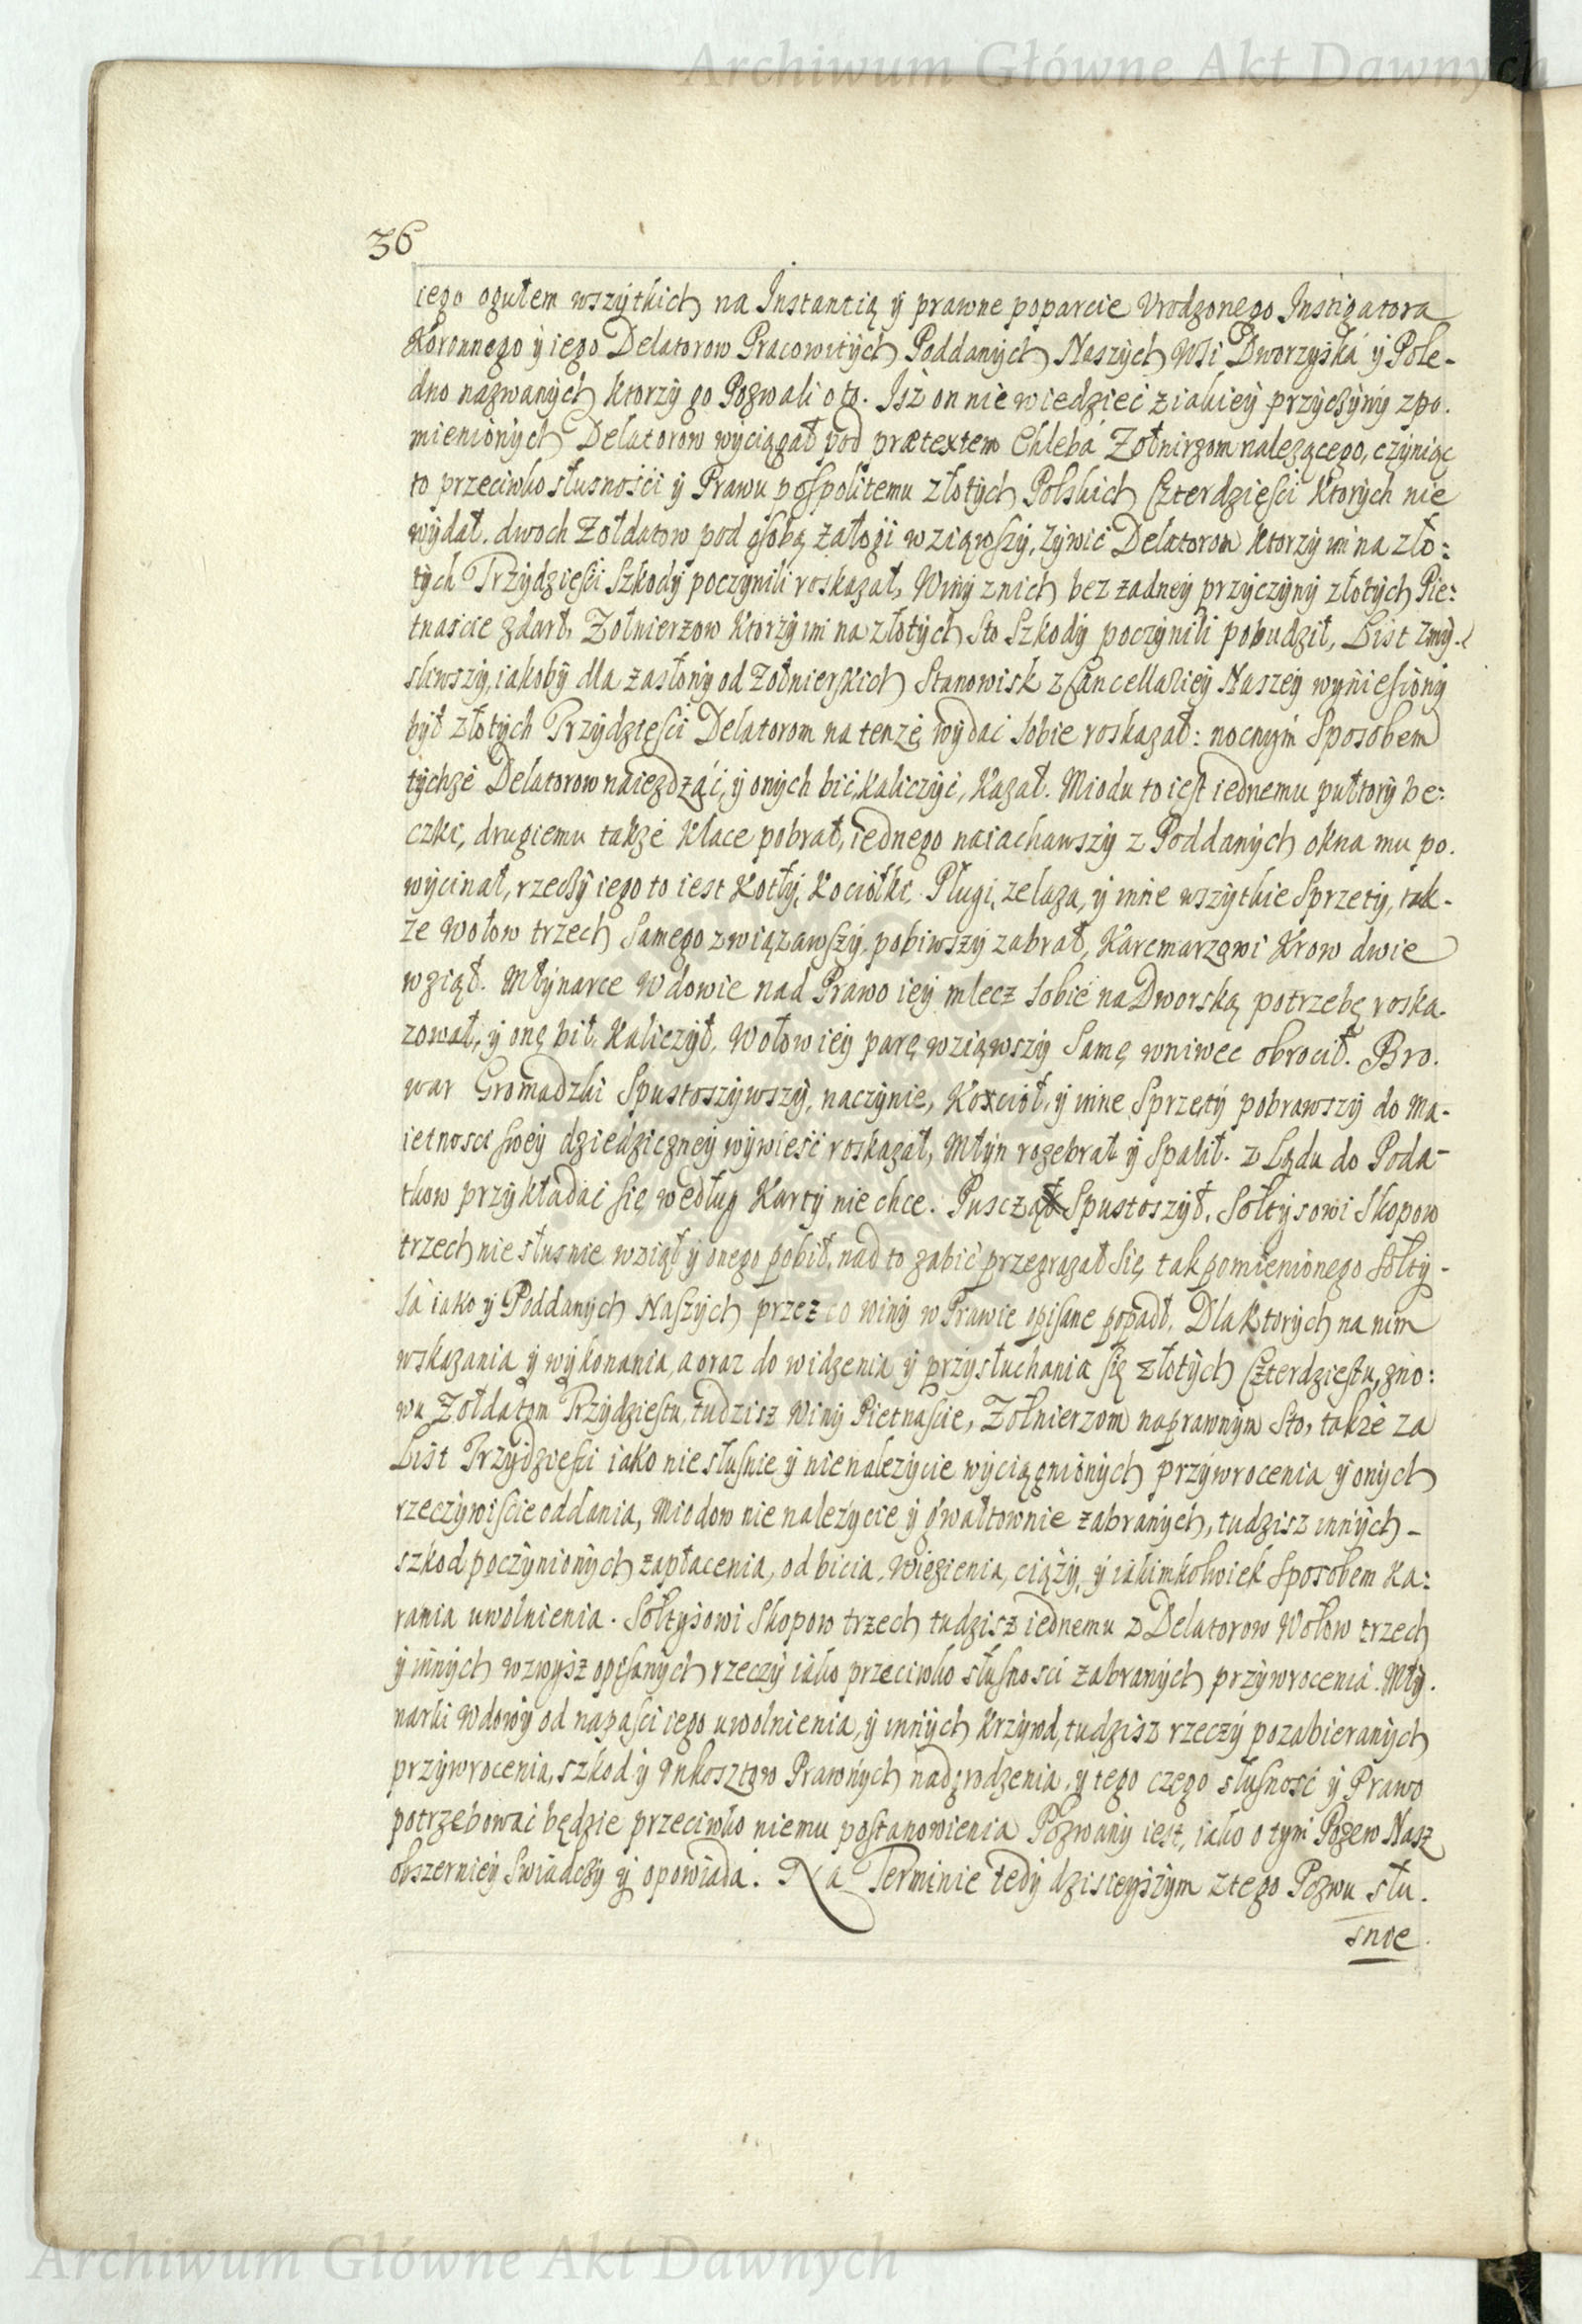 Archiwum Główne Akt Dawnych
36
iego ogułem wszytkich na Instantią ÿ prawne poparcie Vrodzonego Instigatora
Koronnego ÿ iego Delatorow Pracowitÿch Poddanÿch Naszÿch Wsi Dworzÿska ÿ Pole-
dno nazwanÿch ktorzÿ go Pozwali o to. Isz on nie wiedzieć z iakieÿ przÿczÿnÿ z po-
mienionÿch Delatorow wÿciągał pod prætextem Chleba Żołnirzom nalezącego, czÿniąc
to przeciwko słusnosci ÿ Prawu pospolitemu złotÿch Polskich Czterdziesci ktorÿch nie
wÿdał. dwoch Zołdatow pod osobą załogi wziąwszÿ, zÿwić Delatorom ktorzÿ im na zło:
tÿch Trzÿdziesci Szkodÿ poczÿnili roskazał, Winÿ z nich bez zadneÿ przÿczÿnÿ złotÿch Pie:
tnascie zdarł, Zołnierzow ktorzÿ im na złotÿch Sto Szkodÿ poczÿnili pobudził, List zmÿ-
sliwszÿ, iakobÿ dla zasłonÿ od Zołnierskich Stanowisk z Cancellarieÿ Naszeÿ wÿniesionÿ
bÿł złotÿch Trzÿdziesci Delatorom na tenze wÿdać sobie roskazał: nocnÿm Sposobem
tÿchze Delatorow naiezdzać, ÿ onÿch bić, kaliczÿć, kazał. Miodu to iest iednemu pułtorÿ be:
czki, drugiemu takze Klace pobrał, iednego naiachawszÿ z Poddanÿch okna mu po-
wÿcinał, rzeczÿ iego to iest Kotłÿ, Kociołki, Pługi, zelaza, ÿ inne wszÿtkie Sprzetÿ, tak-
ze Wołow trzech Samego związawszÿ, pobiwszÿ zabrał, Karcmarzowi Krow dwie
wziął. Młÿnarce Wdowie nad Prawo ieÿ mlecz sobie na Dworską potrzebę roska-
zował, ÿ onę bił, kaliczÿł, Wołow ieÿ parę wziąwszÿ Samę wniwec obrocił. Bro-
war Gromadzki Spustoszÿwszÿ, naczÿnie, Kocioł, ÿ inne Sprzętÿ pobrawszÿ do Ma-
ietnosci swoeÿ dziedziczneÿ wÿwieść roskazał, Młÿn rozebrał ÿ Spalił. z Lądu do Poda-
tkow przÿkładać się według Kartÿ nie chce. Puszczą Spustoszÿł, Sołtÿsowi Skopow
trzech niesłusnie wziął ÿ onego pobił, nad to zabić przegrazał się tak pomienionego Sołtÿ-
sa iako ÿ Poddanÿch Naszÿch przez co winÿ w Prawie opisane popadł. Dla ktorÿch na nim
wskazania ÿ wÿkonania, a oraz do widzenia ÿ przÿsłuchania się złotÿch Czterdziestu, zno:
wu Zołdatom Trzÿdziestu, tudzisz Winÿ Pietnascie, Zołnierzom naprawnÿm Sto, takze za
List Trzÿdziesci iako niesłusnie ÿ nienalezÿcie wÿciągnionÿch przÿwrocenia ÿ onÿch
rzeczÿwiscie oddania, Miodow nie nalezÿcie ÿ gwałtownie zabranÿch, tudzisz innÿch -
szkod poczÿnionÿch zapłacenia, od bicia, Więzienia, ciązÿ, ÿ iakimkolwiek Sposobem Ka:
rania uwolnienia. Sołtÿsowi Skopow trzech tudzisz iednemu z Delatorow Wołow trzech
ÿ innÿch wzwÿsz opisanÿch rzeczÿ iako przeciwko słusnosci zabranÿch przÿwrocenia. Młÿ-
narki Wdowÿ od napasci iego uwolnienia, ÿ innÿch krzÿwd, tudzisz rzeczÿ pozabieranÿch
przÿwrocenia, szkod ÿ Nakosztow Prawnÿch nadgrodzenia, ÿ tego czego słusnosć ÿ Prawo
potrzebować będzie przeciwko niemu postanowienia Pozwanÿ iest, iako o tÿm Pozew Nasz
obszernieÿ swiadczÿ ÿ opowiada. Na Terminie tedÿ dzisieÿszÿm z tego Pozwu słu-
snie
Archiwum Główne Akt Dawnych